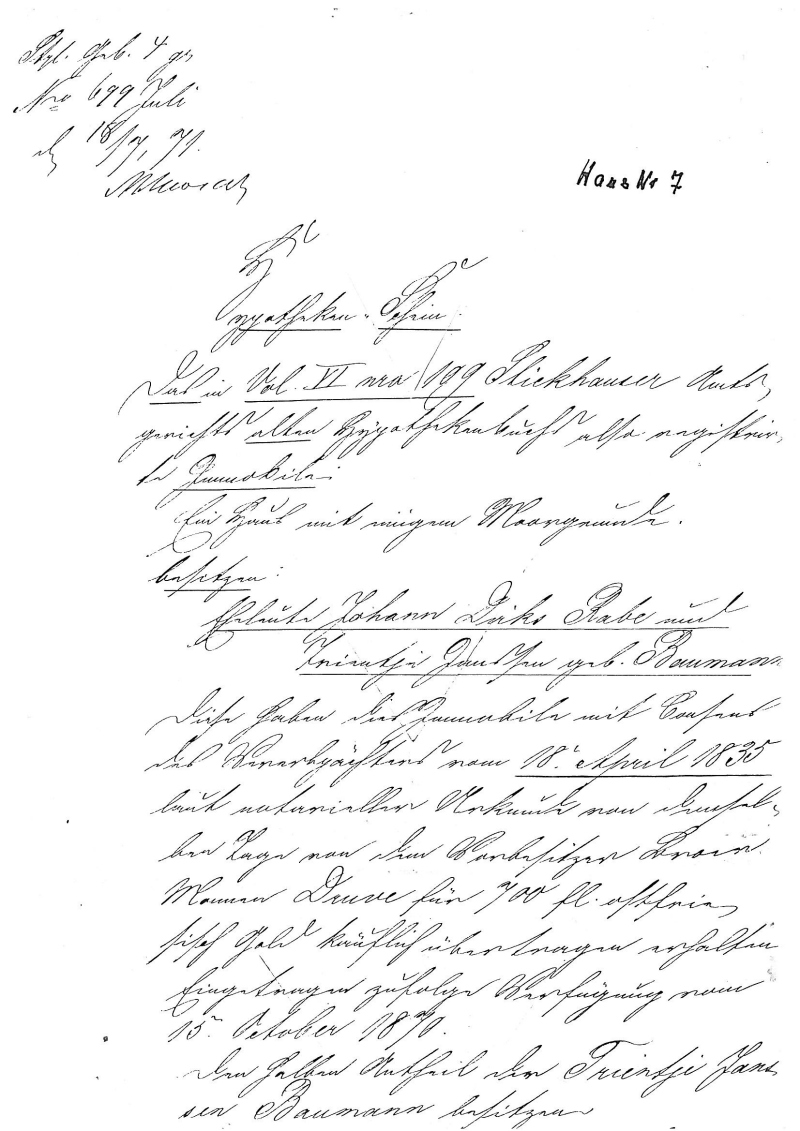 Stpl. Geb. 4 gr
Nro 699 Juli
d 18/7, 71.
Haus Nr 7
Hypotheken-Schein.
Das in Vol. VI nro 199 Stickhauser Amts-
gerichts alten Hypothekenbuchs also registrir-
te Immobile:
Ein Haus mit einigem Moorgrunde.
besitzen:
Eheleute Johann Dirks Rabe und
Trientje Janssen geb. Baumann
Diese haben dies Immobile mit Consens
des Vererbpächters vom 18. April 1835
laut notarieller Urkunde von demsel-
ben Tage von dem Vorbesitzer Broer
Mannen Druve für 700 fl. ostfrie-
sisch Gold käuflich übertragen erhalten
Eingetragen zufolge Verfügung vom
15. October 1870.
Den halben Antheil der Trientje Jans
sen Baumann besitzen